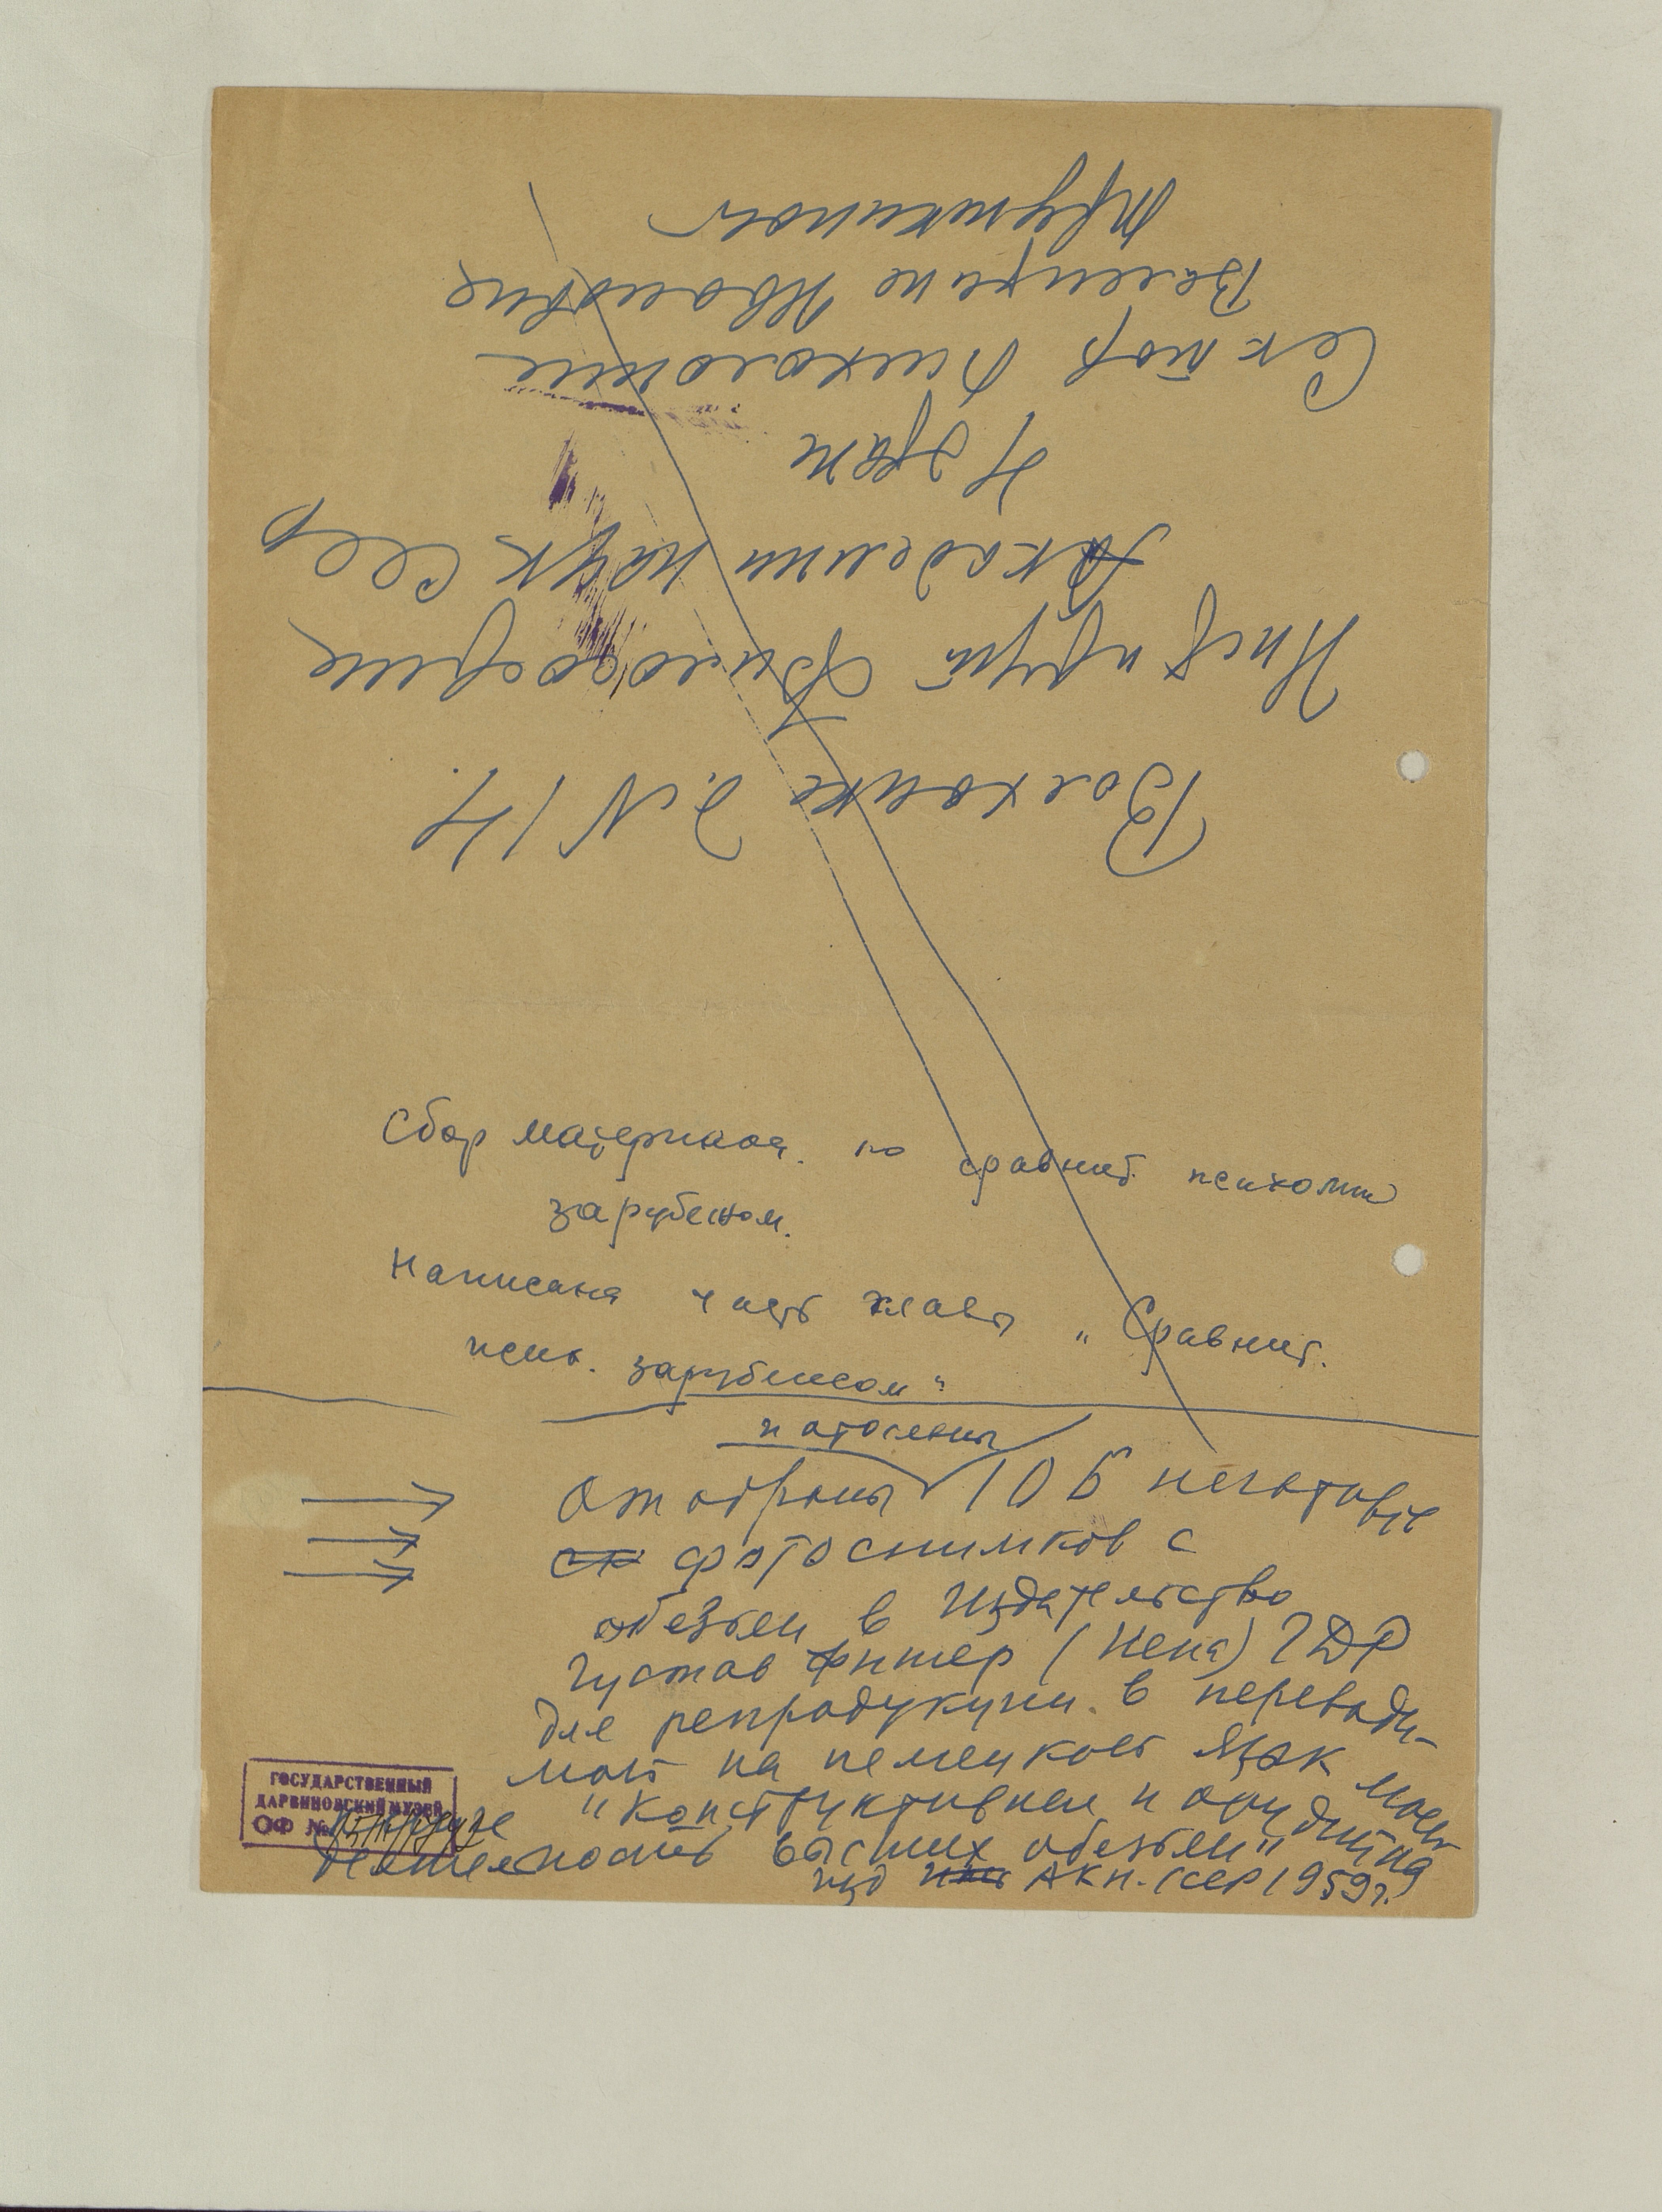 Волхонка д. N 14.
Институт Философии
Академии наук СССР
4 этаж
Сектор Психологии
Валентине Ивановне
Трушкиной
Сбор материала. по сравнит. психологии
зарубежом.
Написана часть главы „Сравнит.
псих. зарубежом"
и отосланы
Отобраны 105 негативов
фотоснимков с
обезьян в Издательство
Густав Фишер (Иена) ГДР
для репродукции в переводи-
мой на немецкий язык моей
"Конструктивная и орудийная
деятельность высших обезьян"
изд АкН. СССР 1959 г.
ГОСУДАРСТВЕННЫЙ
ДАРВИНОВСКИЙ МУЗЕЙ
ОФ №